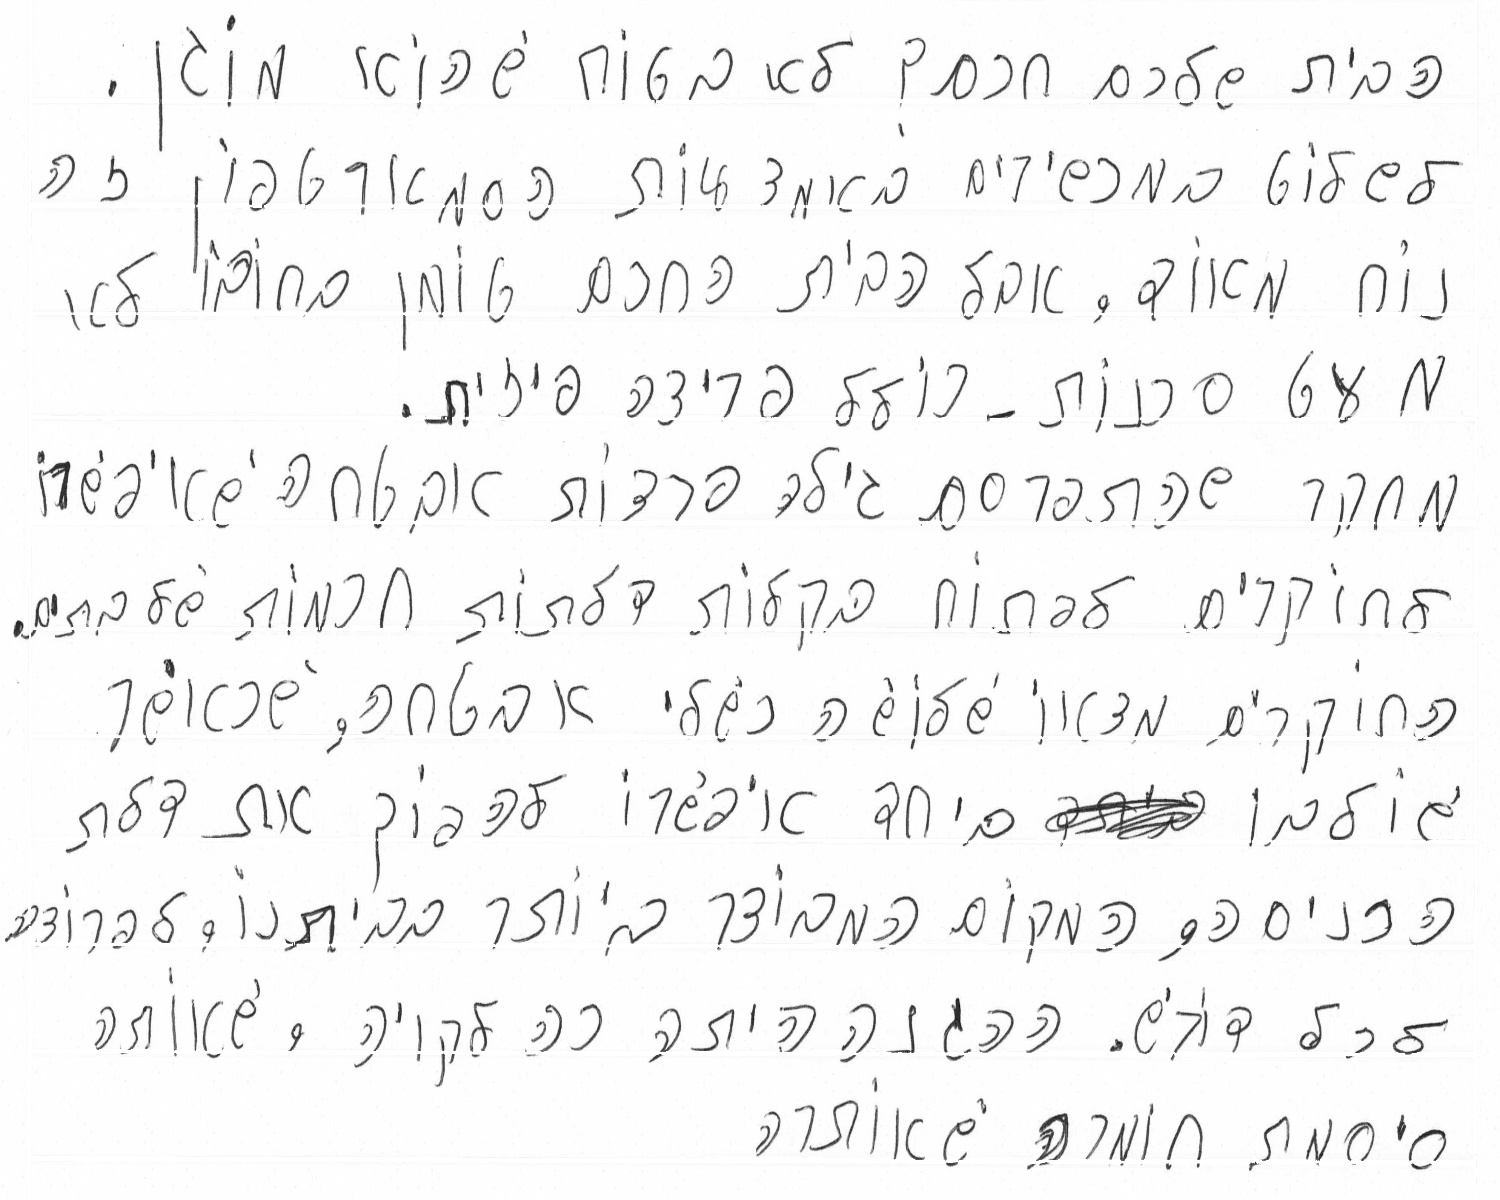 הבית שלכם חכם? לא בטוח שהוא מוגן.
לשלוט במכשירים באמצעות הסמארטפון זה
נוח מאוד, אבל הבית החכם טומן בחובו לא
מעט סכנות - כולל פריצה פיזית.
מחקר שהתפרסם גילה פרצות אבטחה שאיפשרו
לחוקרים לפתוח בקלות דלתות חכמות של בתים.
החוקרים מצאו שלושה כשלי אבטחה, שכאשר
שולבו ביחד איפשרו להפוך את דלת
הכניסה, המקום המבוצר ביותר בביתנו, לפרוצה
לכל דורש. ההגנה היתה כה לקויה, שאותה
סיסמת חומרה שאותרה